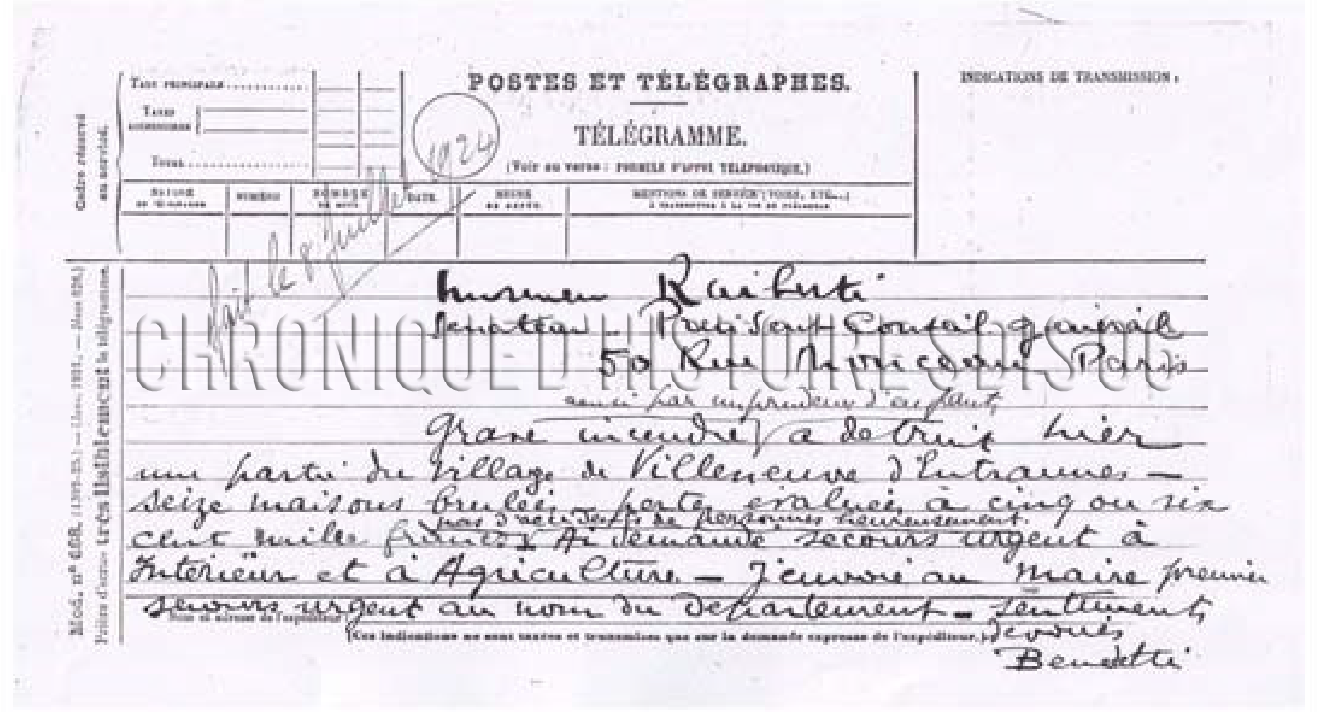 POSTES ET TÉLÉGRAPHES.
INDICATIONS DE TRANSMISSION :
TÉLÉGRAMME.
(Voir au verso : FORMULE D'APPEL TÉLÉPHONIQUE.)
Cadre réservé
au service.
TAXE PRINCIPALE
TAXES
ACCESSOIRES
TOTAL
NATURE
DU TÉLÉGRAMME
NUMÉRO
NOMBRE
DE MOTS
DATE
HEURE
DE DÉPÔT
MENTIONS DE SERVICE
fait le 8 Juillet 1924
Monsieur Raiberti
Senateur - President Conseil général
50 Rue Monceau Paris
CHRONIQUED'HISTOIRESDISOU
causé par imprudence d'enfant,
Grave incendie a detruit hier
une partie du village de Villeneuve d'Entraunes -
seize maisons brulées, perte evaluée à cinq ou six
pas d'accidents de personnes heureusement.
cent mille francs Ai demandé secours urgent à
Intérieur et à Agriculture - J'envoie au maire premier
secours urgent au nom du Departement - sentiments
dévoués
Benedetti
Nom et adresse de l'expéditeur
(Ces indications ne sont taxées et transmises que sur la demande expresse de l'expéditeur.)
Mod. n° 698.
Prière d'écrire très lisiblement le télégramme.